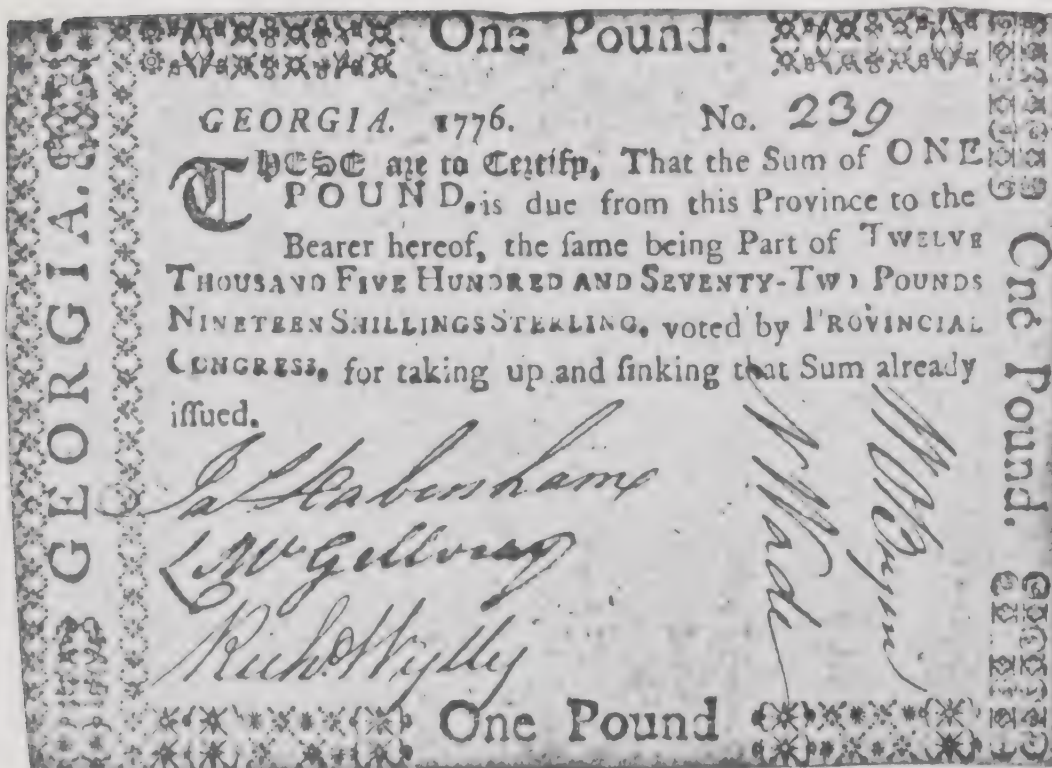 One Pound.
GEORGIA. 1776. No. 239
THESE are to Certify, That the Sum of ONE
POUND, is due from this Province to the
Bearer hereof, the ſame being Part of TWELVE
THOUSAND FIVE HUNDRED AND SEVENTY-TWO POUNDS
NINETEEN SHILLINGS STERLING, voted by PROVINCIAL
CONGRESS, for taking up and ſinking that Sum already
iſſued.
Ja Habersham
L McGillvray
Richd. Wylly
N Wade
One Pound
GEORGIA.
One Pound.